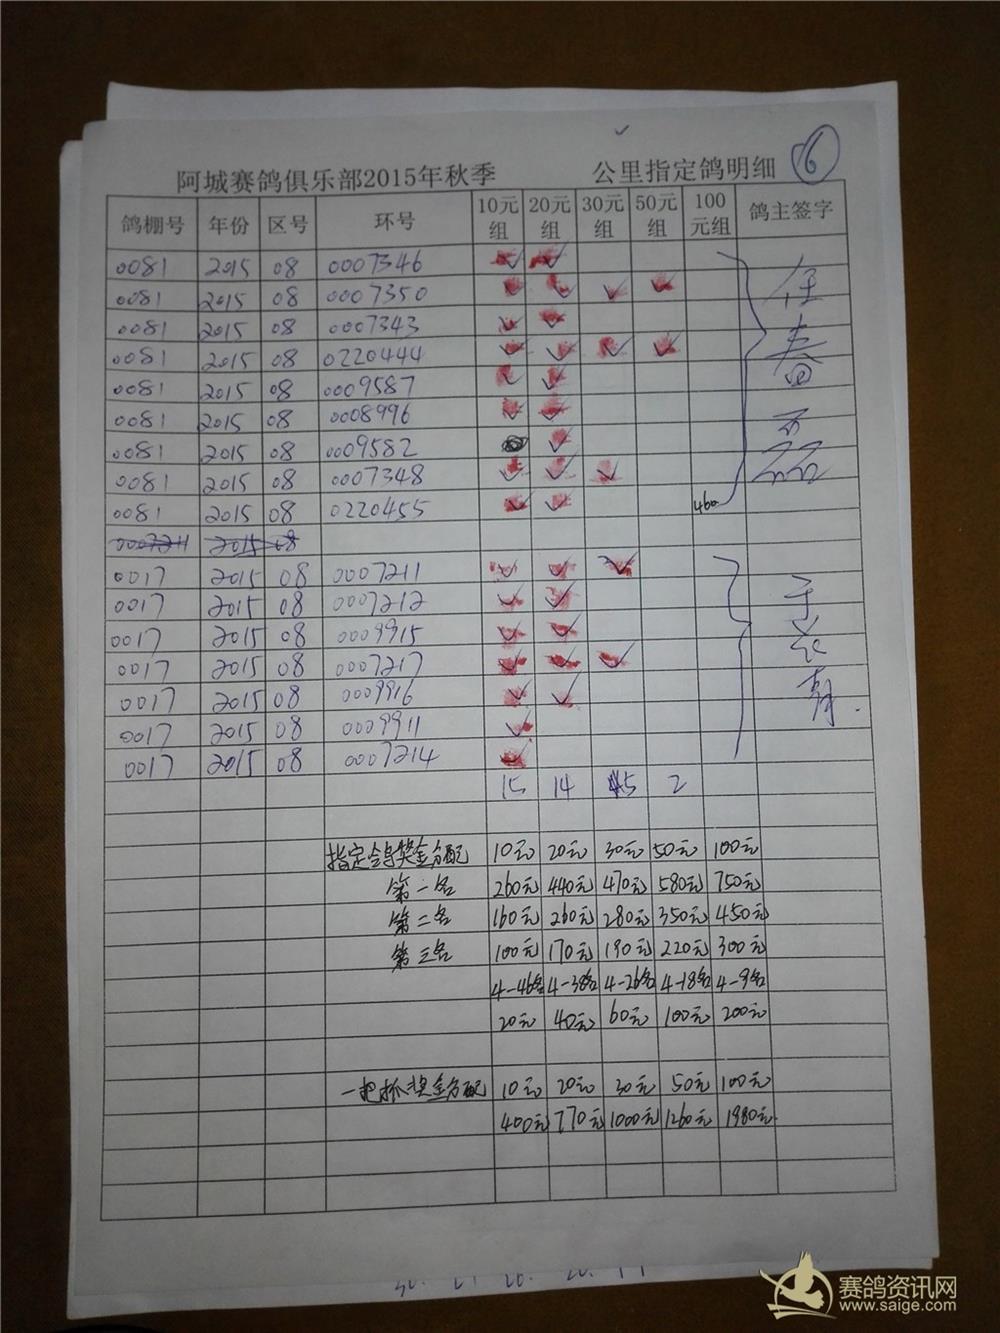 6
阿城赛鸽俱乐部2015年秋季 公里指定鸽明细
鸽棚号 年份 区号 环号 10元组 20元组 30元组 50元组 100元组 鸽主签字
0081 2015 08 0007346 ✓ ✓
0081 2015 08 0007350 ✓ ✓ ✓ ✓
0081 2015 08 0007343 ✓ ✓
0081 2015 08 0220444 ✓ ✓ ✓ ✓
0081 2015 08 0009587 ✓ ✓
0081 2015 08 0008996 ✓ ✓
0081 2015 08 0009582 ✓
0081 2015 08 0007348 ✓ ✓ ✓
0081 2015 08 0220455 ✓ ✓ 460
0007211 2015 08
0017 2015 08 0007211 ✓ ✓ ✓
0017 2015 08 0007212 ✓ ✓
0017 2015 08 0009915 ✓ ✓
0017 2015 08 0007217 ✓ ✓ ✓
0017 2015 08 0009916 ✓ ✓
0017 2015 08 0009911 ✓
0017 2015 08 0007214 ✓
15 14 5 2
指定鸽奖金分配 10元 20元 30元 50元 100元
第一名 260元 440元 470元 580元 750元
第二名 160元 260元 280元 350元 450元
第三名 100元 170元 190元 220元 300元
4-46名 4-38名 4-26名 4-18名 4-9名
20元 40元 60元 100元 200元
一把抓奖金分配 10元 20元 30元 50元 100元
400元 770元 1000元 1260元 1980元
赛鸽资讯网
www.saige.com